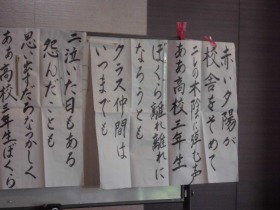 赤い夕陽が
校舎をそめて
ニレの木陰に弾む声
ああ高校三年生
ぼくら離れ離れに
なろうとも
クラス仲間は
いつまでも
二泣いた日もある
怨んだことも
思い出すだろうなつかしく
ああ高校三年生ぼくら